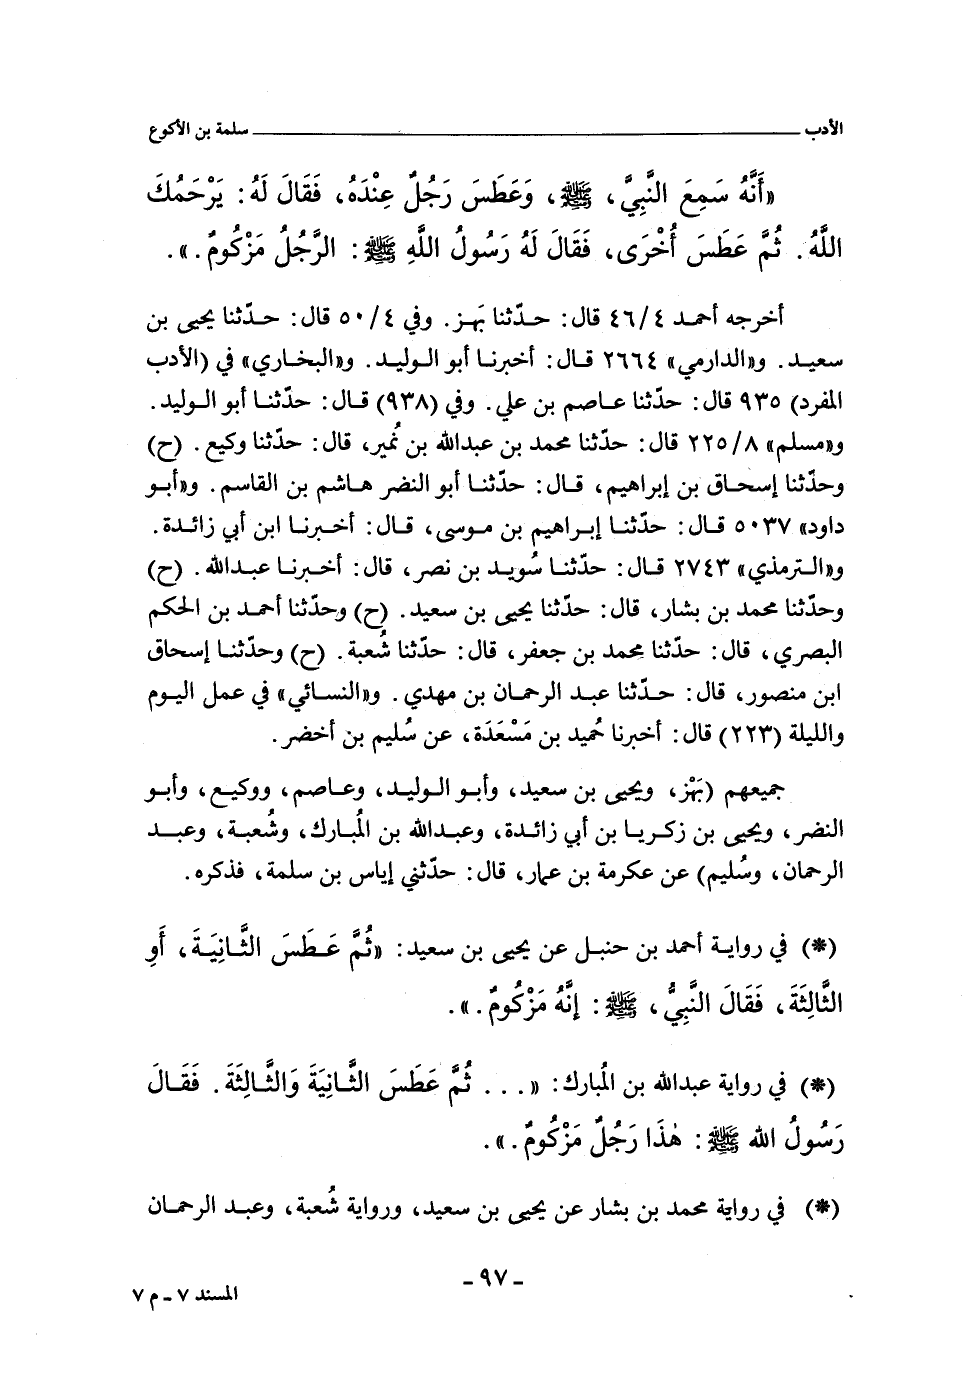 الأدب ــــــــ سلمة بن الأكوع
«أَنَّهُ سَمِعَ النَّبِيَّ، ﷺ، وَعَطَسَ رَجُلٌ عِنْدَهُ، فَقَالَ لَهُ: يَرْحَمُكَ
اللَّهُ. ثُمَّ عَطَسَ أُخْرَى، فَقَالَ لَهُ رَسُولُ اللَّهِ ﷺ: الرَّجُلُ مَزْكُومٌ.».
أخرجه أحمد ٤/٤٦ قال: حدّثنا بَهز. وفي ٤/٥٠ قال: حدّثنا يحيى بن
سعيد. و«الدارمي» ٢٦٦٤ قال: أخبرنا أبو الوليد. و«البخاري» في (الأدب
المفرد) ٩٣٥ قال: حدّثنا عاصم بن علي. وفي (٩٣٨) قال: حدّثنا أبو الوليد.
و«مسلم» ٨/٢٢٥ قال: حدّثنا محمد بن عبدالله بن نُمير، قال: حدّثنا وكيع. (ح)
وحدّثنا إسحاق بن إبراهيم، قال: حدّثنا أبو النضر هاشم بن القاسم. و«أبو
داود» ٥٠٣٧ قال: حدّثنا إبراهيم بن موسى، قال: أخبرنا ابن أبي زائدة.
و«الترمذي» ٢٧٤٣ قال: حدّثنا سُويد بن نصر، قال: أخبرنا عبدالله. (ح)
وحدّثنا محمد بن بشار، قال: حدّثنا يحيى بن سعيد. (ح) وحدّثنا أحمد بن الحكم
البصري، قال: حدّثنا محمد بن جعفر، قال: حدّثنا شُعبة. (ح) وحدّثنا إسحاق
ابن منصور، قال: حدّثنا عبد الرحمان بن مهدي. و«النسائي» في عمل اليوم
والليلة (٢٢٣) قال: أخبرنا حُميد بن مَسْعَدَة، عن سُليم بن أخضر.
جميعهم (بَهْز، ويحيى بن سعيد، وأبو الوليد، وعاصم، ووكيع، وأبو
النضر، ويحيى بن زكريا بن أبي زائدة، وعبدالله بن المُبارك، وشُعبة، وعبد
الرحمان، وسُليم) عن عكرمة بن عمار، قال: حدّثني إياس بن سلمة، فذكره.
(*) في رواية أحمد بن حنبل عن يحيى بن سعيد: «ثُمَّ عَطَسَ الثَّانِيَةَ، أَوِ
الثَّالِثَةَ، فَقَالَ النَّبِيُّ، ﷺ: إِنَّهُ مَزْكُومٌ.».
(*) في رواية عبدالله بن المُبارك: «... ثُمَّ عَطَسَ الثَّانِيَةَ وَالثَّالِثَةَ. فَقَالَ
رَسُولُ الله ﷺ: هٰذَا رَجُلٌ مَزْكُومٌ.».
(*) في رواية محمد بن بشار عن يحيى بن سعيد، ورواية شُعبة، وعبد الرحمان
- ٩٧ -
المسند ٧ - م ٧